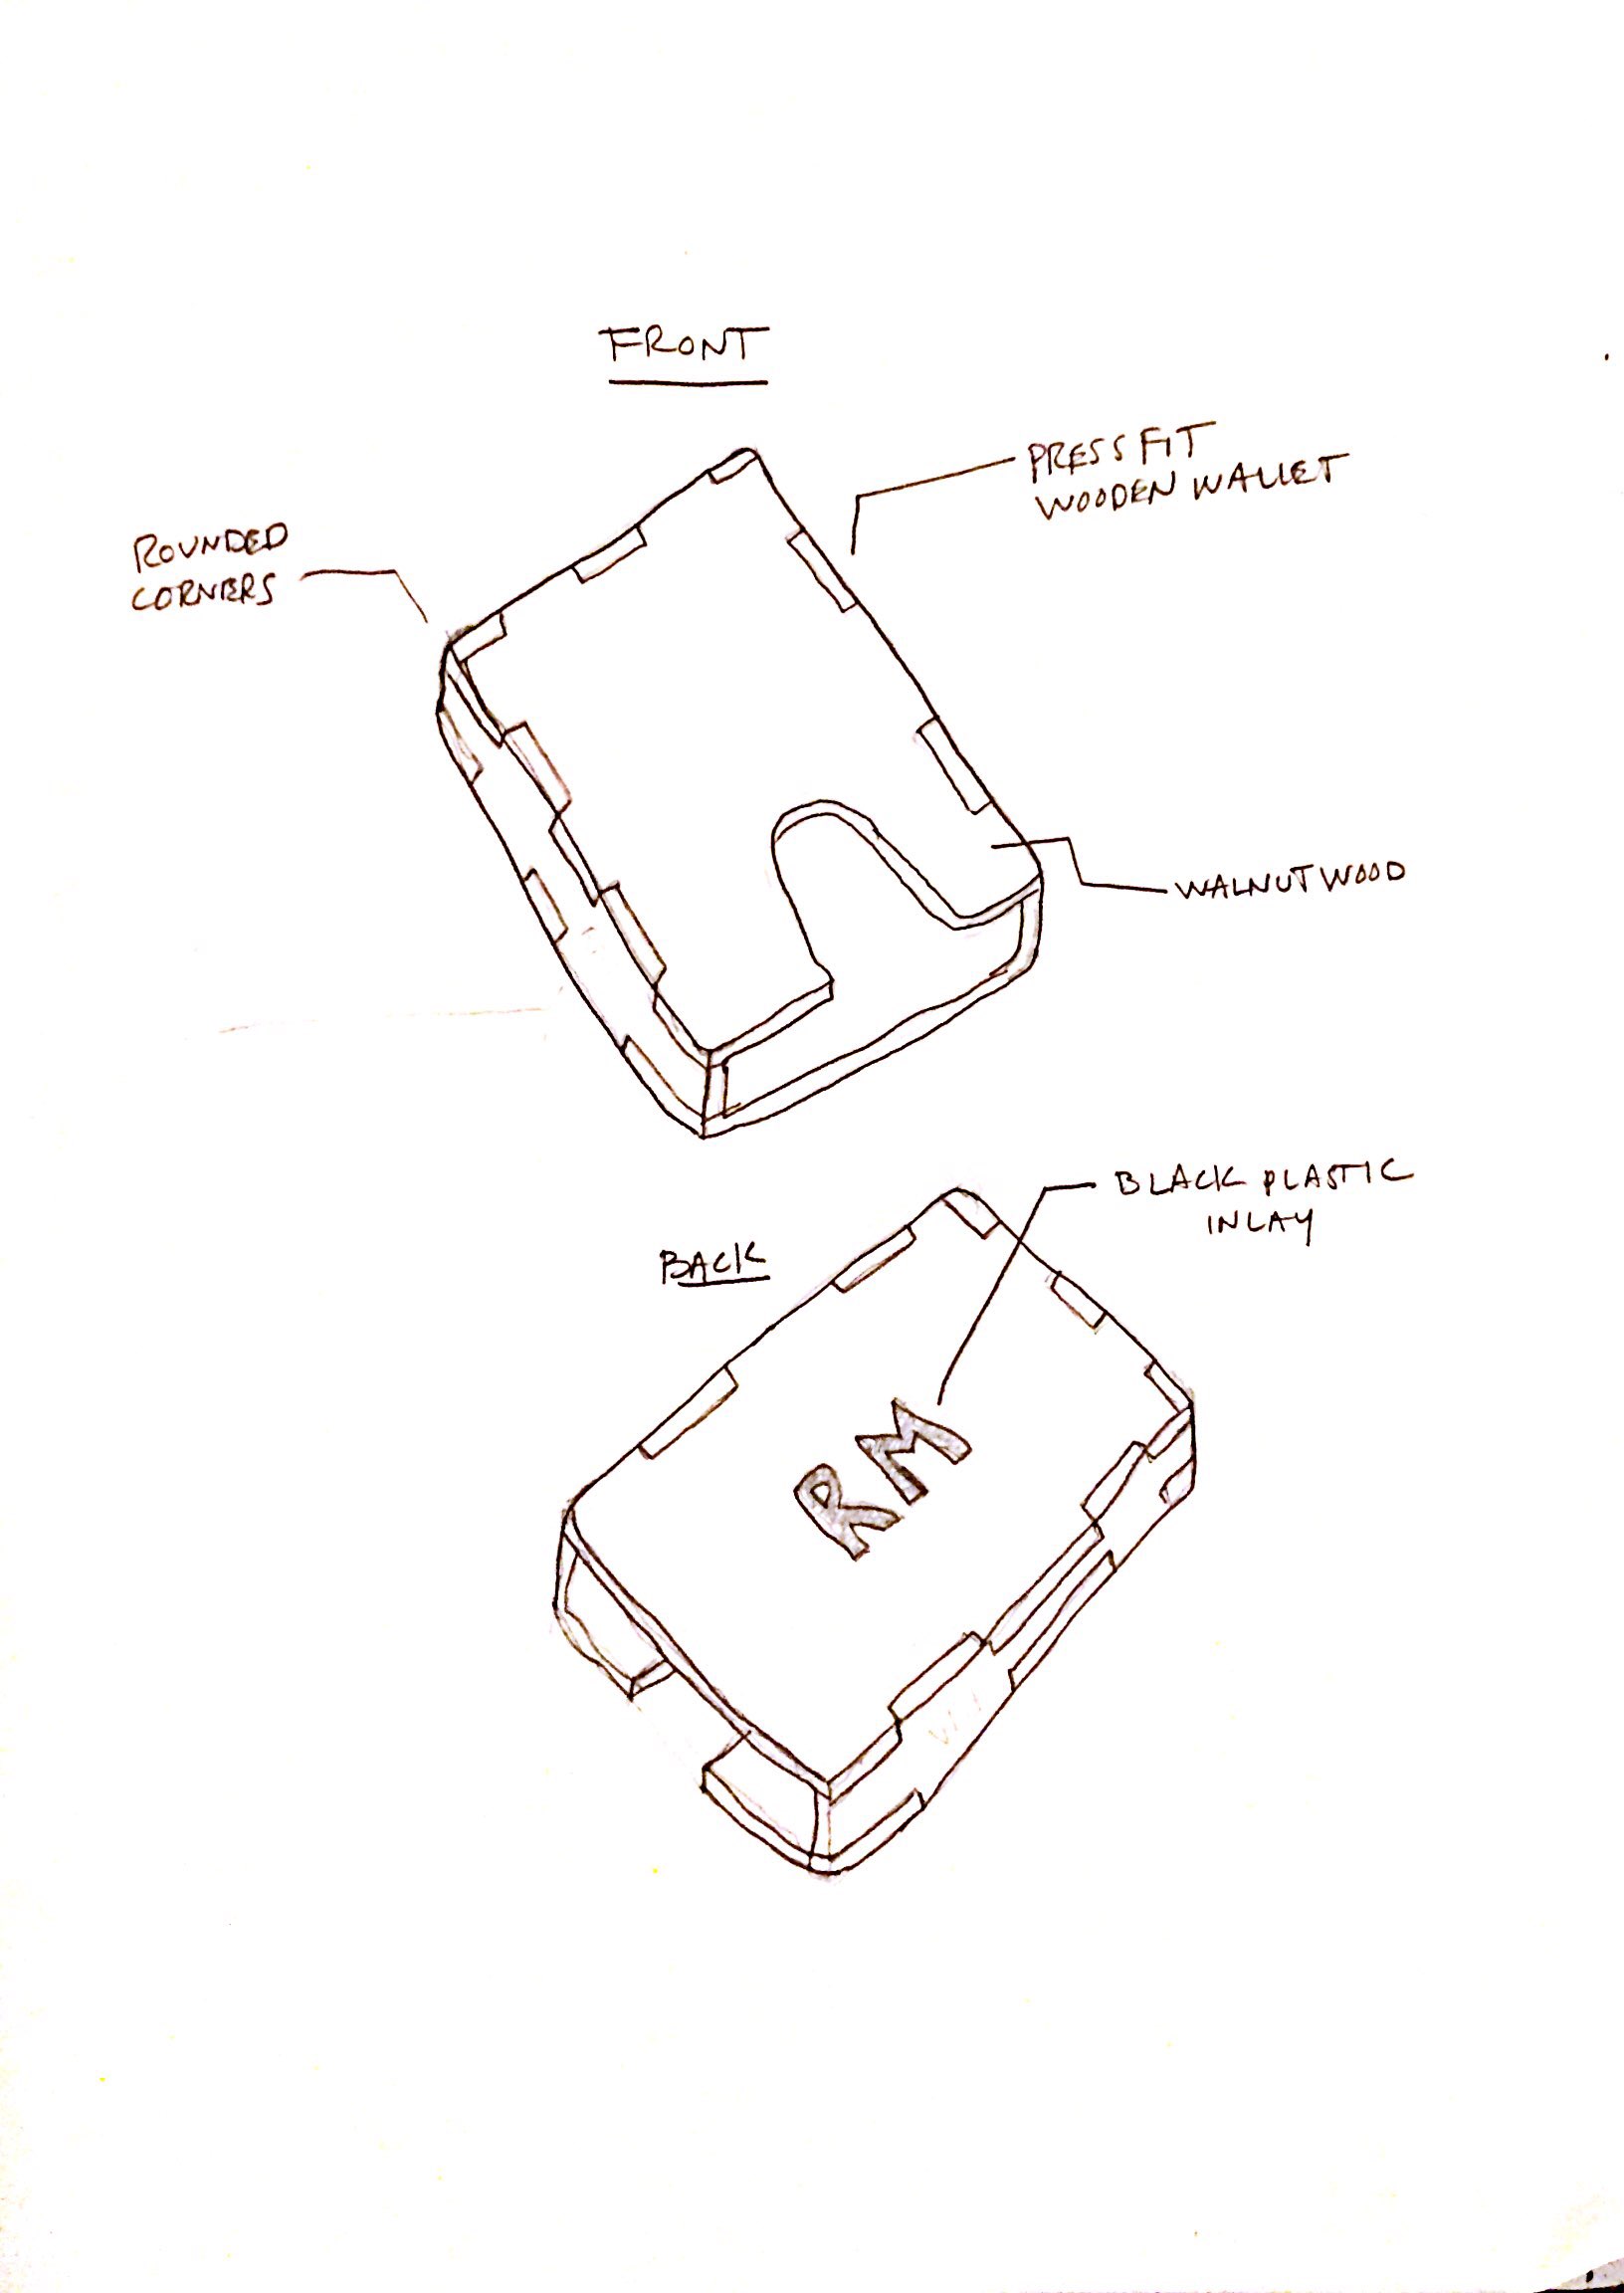 FRONT
PRESS FIT
WOODEN WALLET
ROUNDED
CORNERS
WALNUT WOOD
BLACK PLASTIC
INLAY
BACK
RM